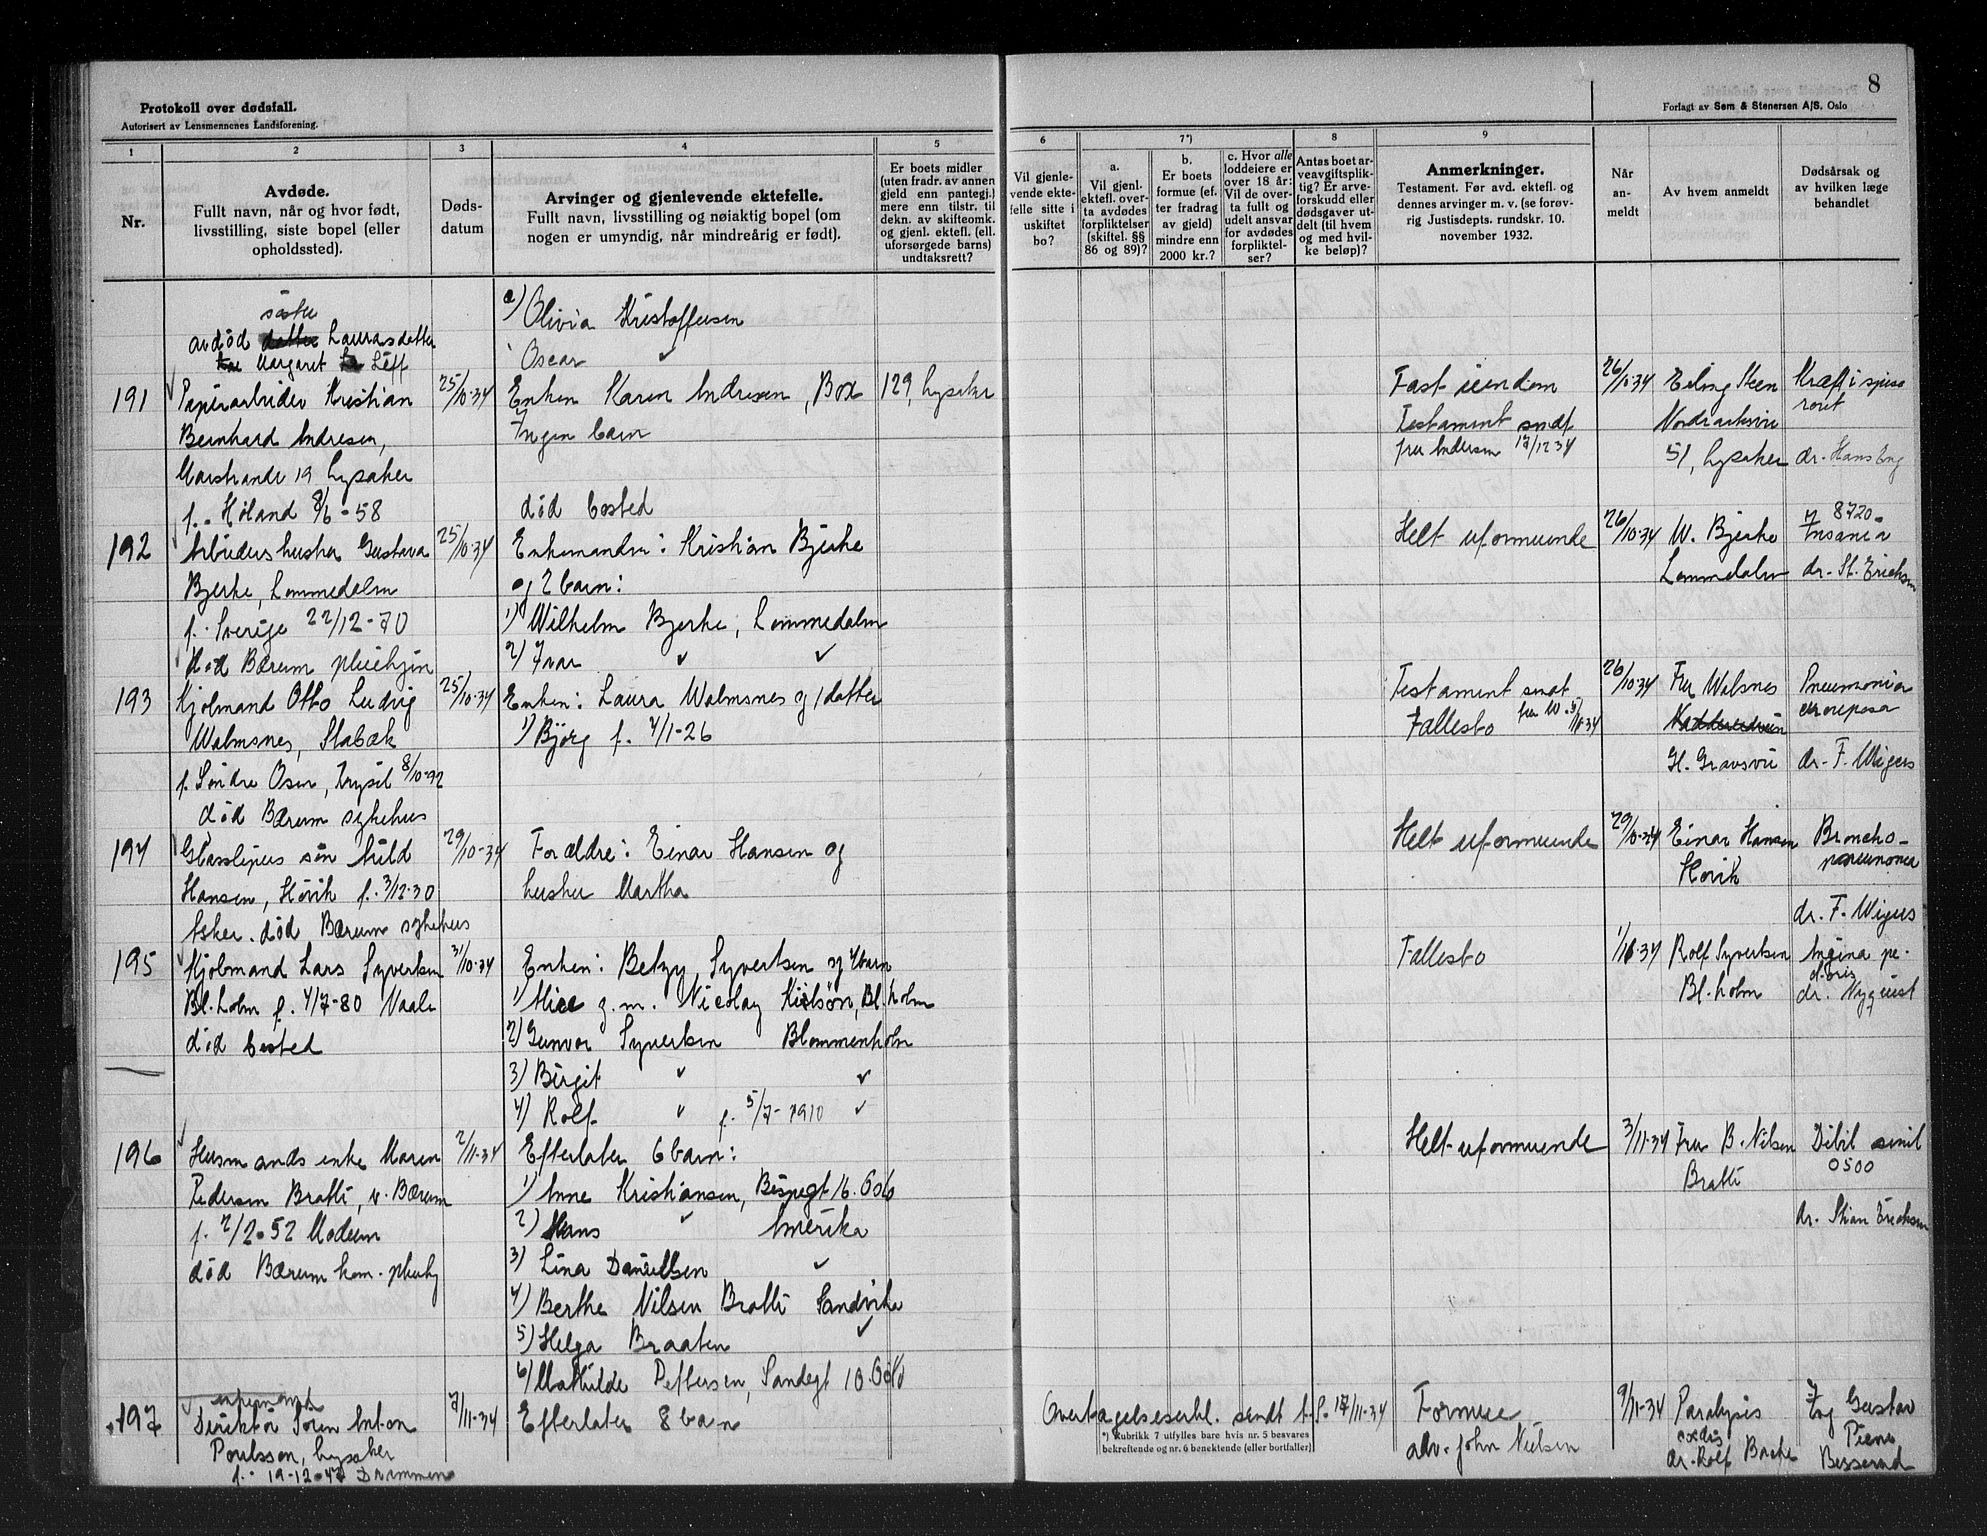 8
Protokoll over dødsfall.
Autorisert av Lensmennenes Landsforening.
Forlagt av Sem & Stenersen A/S. Oslo
1 2 3 4 5 6 7*) 8 9
Nr.
Avdøde.
Fullt navn, når og hvor født,
livsstilling, siste bopel (eller
opholdssted).
Døds-
datum
Arvinger og gjenlevende ektefelle.
Fullt navn, livsstilling og nøiaktig bopel (om
nogen er umyndig, når mindreårig er født).
Er boets midler
(uten fradr. av annen
gjeld enn pantegj.)
mere enn tilstr. til
dekn. av skifteomk.
og gjenl. ektefl. (ell.
uforsørgede barns)
undtaksrett?
Vil gjenle-
vende ekte-
felle sitte i
uskiftet
bo?
a.
Vil gjenl.
ektefl. over-
ta avdødes
forpliktelser
(skiftel. §§
86 og 89)?
b.
Er boets
formue (ef-
ter fradrag
av gjeld)
mindre enn
2000 kr.?
c. Hvor alle
loddeiere er
over 18 år:
Vil de over-
ta fullt og
udelt ansvar
for avdødes
forpliktel-
ser?
Antas boet ar-
veavgiftsplik-
tig? Er arve-
forskudd eller
dødsgaver ut-
delt (til hvem
og med hvil-
ke beløp)?
Anmerkninger.
Testament. Før avd. ektefl. og
dennes arvinger m. v. (se forøv-
rig Justisdepts. rundskr. 10.
november 1932.
Når
an-
meldt
Av hvem anmeldt
Dødsårsak og
av hvilken læge
behandlet
søster
avdød datter Laurasdatter
Margaret Leff
a) Olivia Kristoffersen
Oscar ✓
191
Papirarbeider Kristian
Bernhard Andresen,
Marstrands 19 Lysaker
f. Høland 8/6-58
25/10-34
Enken Karen Andresen, Box 129, Lysaker
Ingen barn
død bosted
Fast eiendom
Testament sendt
fru Andersen 17/12 34
26/10-34
Erling Steen
51, Lysaker
Kræft i spise
røret
dr. Hans Eng
192
Arbeiders hustru Gustava
Bjerke, Lommedalen
f. Sverige 22/12-70
død Bærum pleiehjem
25/10-34
Enkemanden: Kristian Bjerke
og 2 barn:
1) Wilhelm Bjerke, Lommedalen
2) Ivar ✓ ✓
Helt uformuende
26/10-34
W. Bjerke
Lommedalen
8720
Insania
dr. St. Erichsen
193
Hjelmand Otto Ludvig
Walmsnes, Stabæk
f. Søndre Osen, Trysil 8/10-92
død Bærum sykehus
25/10-34
Enken: Laura Walmsnes og 1 datter
1) Bjørg f. 4/1-26
Testament sendt
fru W. 5/11-34
Fallesbo
26/10-34
Fru Walsnes
Gl. Gravsvei
Pneumonia
dr. F. Wigers
194
Glassslipers søn Arild
Hansen, Høvik f. 3/12-30
Asker. død Bærum sykehus
29/10-34
Forældre: Einar Hansen og
hustru Martha
Helt uformuende
29/10-34
Einar Hansen
Høvik
Broncho-
pneumonia
dr. F. Wigers
195
Hjelmand Lars Syvertsen
Bl.holm f. 4/7-80 Vaale
død bosted
31/10-34
Enken: Betzy Syvertsen og 4 barn
1) Alice g.m. Nicolay Kielsøn, Bl.holm
2) Gunvor Syvertsen Blommenholm
3) Birgit ✓ ✓
4) Rolf ✓ f. 5/7-1910 ✓
Fallesbo
Rolf Syvertsen
Bl.holm
Angina pe-
ctoris
dr. Nyquist
196
Husmands enke Maren
Pedersen Bratli, v. Bærum
f. 2/2-52 Modum
død Bærum kom. pleiehj
2/11-34
Efterlater 6 barn:
1) Anne Kristiansen, Bispegt 16. Oslo
2) Hans ✓ Amerika
3) Lina Danielsen ✓
4) Berthe Nilsen Bratli Sandvika
5) Helga Braaten ✓
6) Mathilde Pettersen, Sandegt 10 Oslo
Helt uformuende
3/11-34
Fru B. Nilsen
Bratli
Debil senil
0500
dr. Stian Erichsen
197
enkemand
Direktør Søren Anton
Poulsson, Lysaker
f. 19-12-47 Drammen
7/11-34
Efterlater 8 barn
Overtagelseserkl. sendt t.S. 17/11-34
*) Rubrikk 7 utfylles bare hvis nr. 5 besvares
bekreftende og nr. 6 benektende (eller bortfaller)
Formue
adv. John Nielsen
9/11-34
Paralysis
cordis
dr. Rolf Backe
Ing Gustav
Piene
Besserud